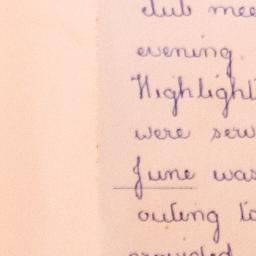 club mee
evening.
Highlight
were serv
June was
outing to
provided